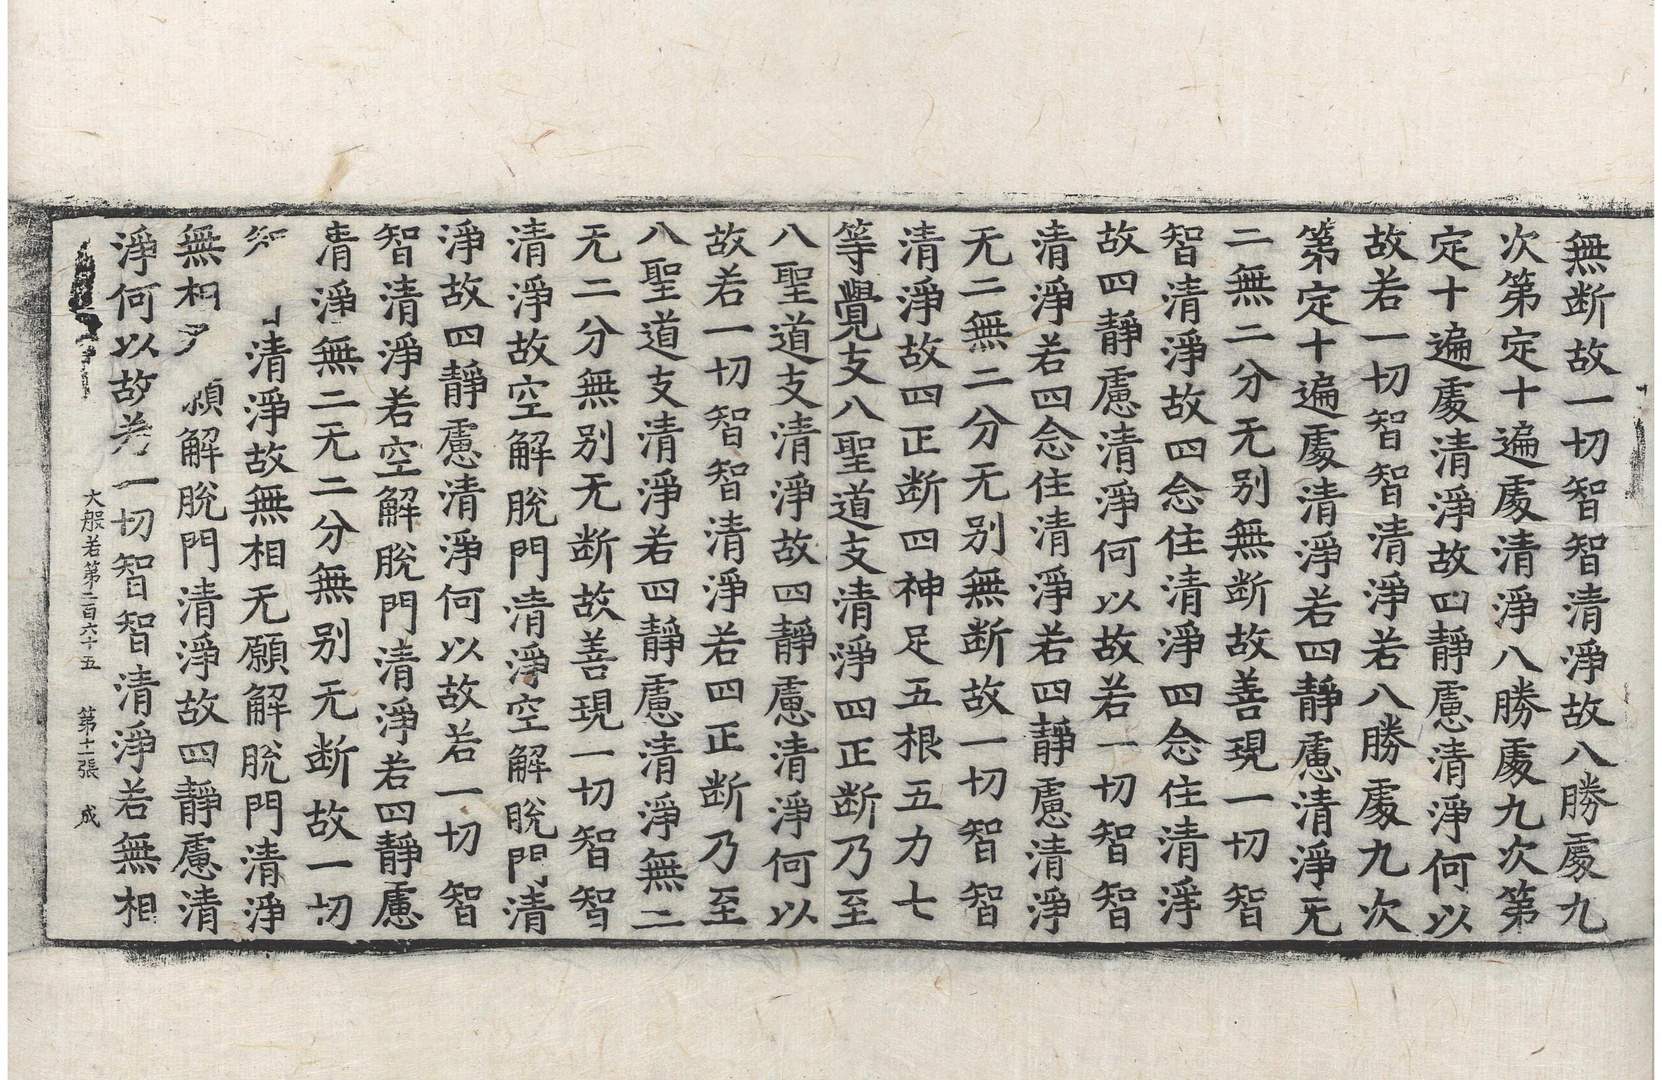 無断故一切智智清淨故八勝處九
次第定十遍處清淨八勝處九次第
定十遍處清淨故四靜慮清淨何以
故若一切智智清淨若八勝處九次
第定十遍處清淨若四靜慮清淨无
二無二分无别無断故善現一切智
智清淨故四念住清淨四念住清淨
故四靜慮清淨何以故若一切智智
清淨若四念住清淨若四靜慮清淨
无二無二分无别無断故一切智智
清淨故四正断四神足五根五力七
等覺支八聖道支清淨四正断乃至
八聖道支清淨故四靜慮清淨何以
故若一切智智清淨若四正断乃至
八聖道支清淨若四靜慮清淨無二
无二分無别无断故善現一切智智
清淨故空解脫門清淨空解脫門清
淨故四靜慮清淨何以故若一切智
智清淨若空解脫門清淨若四靜慮
清淨無二无二分無别无断故一切
智清淨故無相无願解脫門清淨
無相願解脫門清淨故四靜慮清
淨何以故若一切智智清淨若無相
大般若第二百六十五 第十一張 成